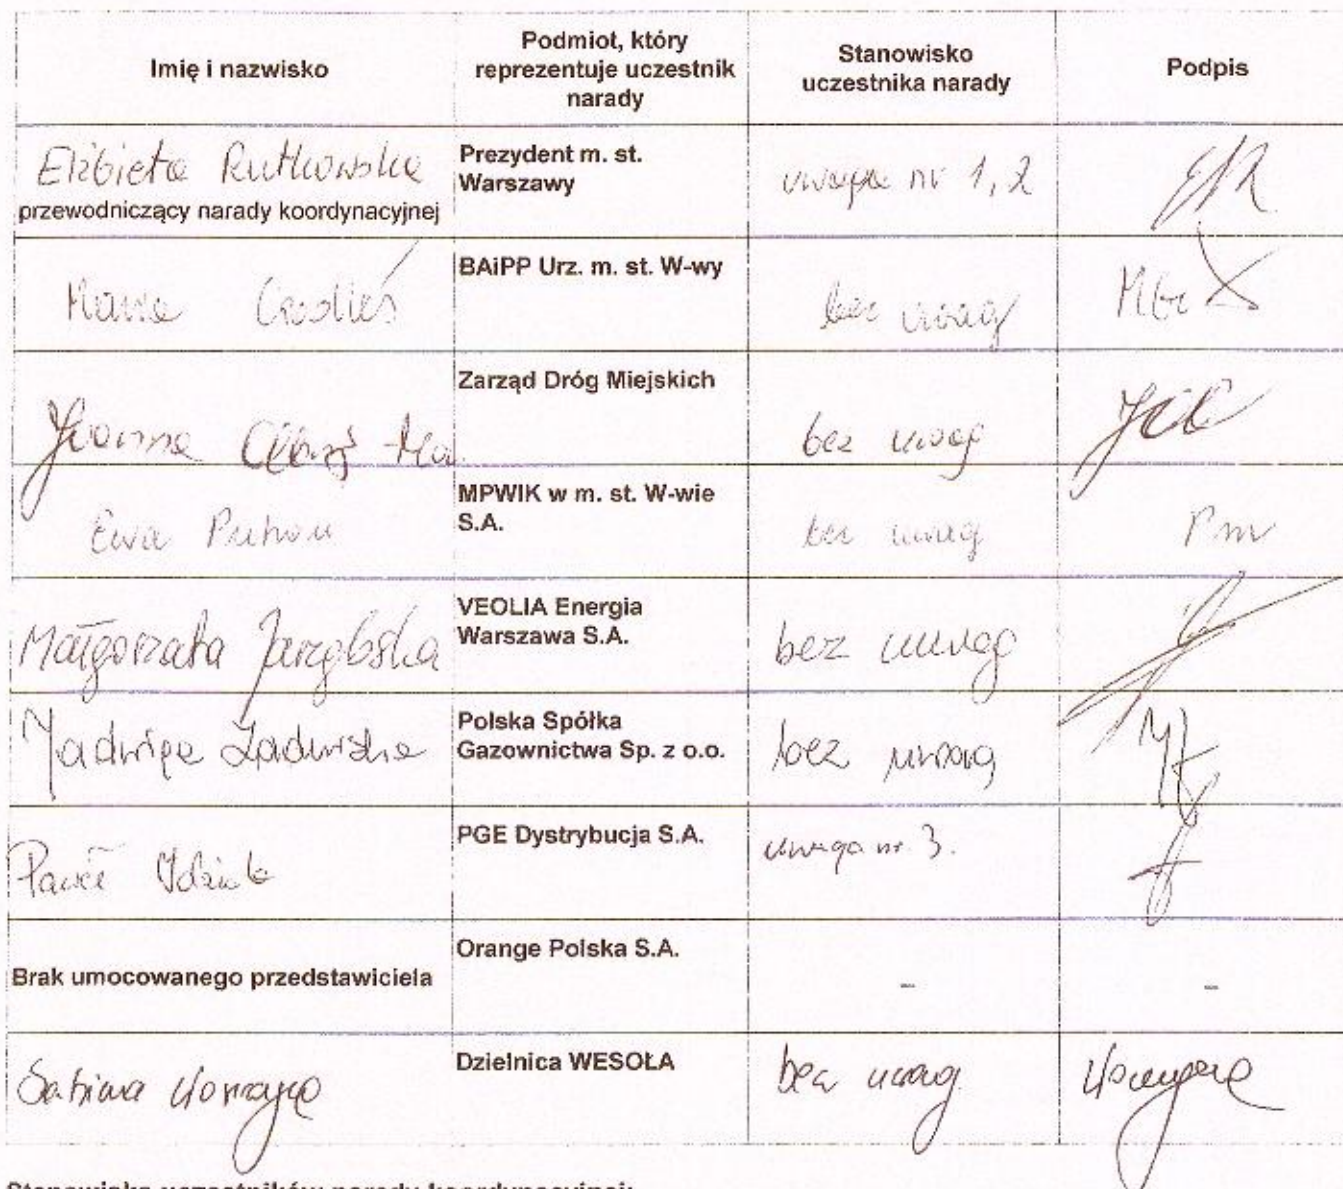 Imię i nazwisko
Podmiot, który
reprezentuje uczestnik
narady
Stanowisko
uczestnika narady
Podpis
Elżbieta Rutkowska
przewodniczący narady koordynacyjnej
Prezydent m. st.
Warszawy
uwaga nr 1, 2
BAiPP Urz. m. st. W-wy
bez uwag
Zarząd Dróg Miejskich
bez uwag
Ewa
MPWIK w m. st. W-wie
S.A.
bez uwag
Małgorzata
VEOLIA Energia
Warszawa S.A.
bez uwag
Jadwiga
Polska Spółka
Gazownictwa Sp. z o.o.
bez uwag
Paweł
PGE Dystrybucja S.A.
uwaga nr 3.
Brak umocowanego przedstawiciela
Orange Polska S.A.
-
-
Sabina
Dzielnica WESOŁA
bez uwag
Stanowiska uczestników narady koordynacyjnej: